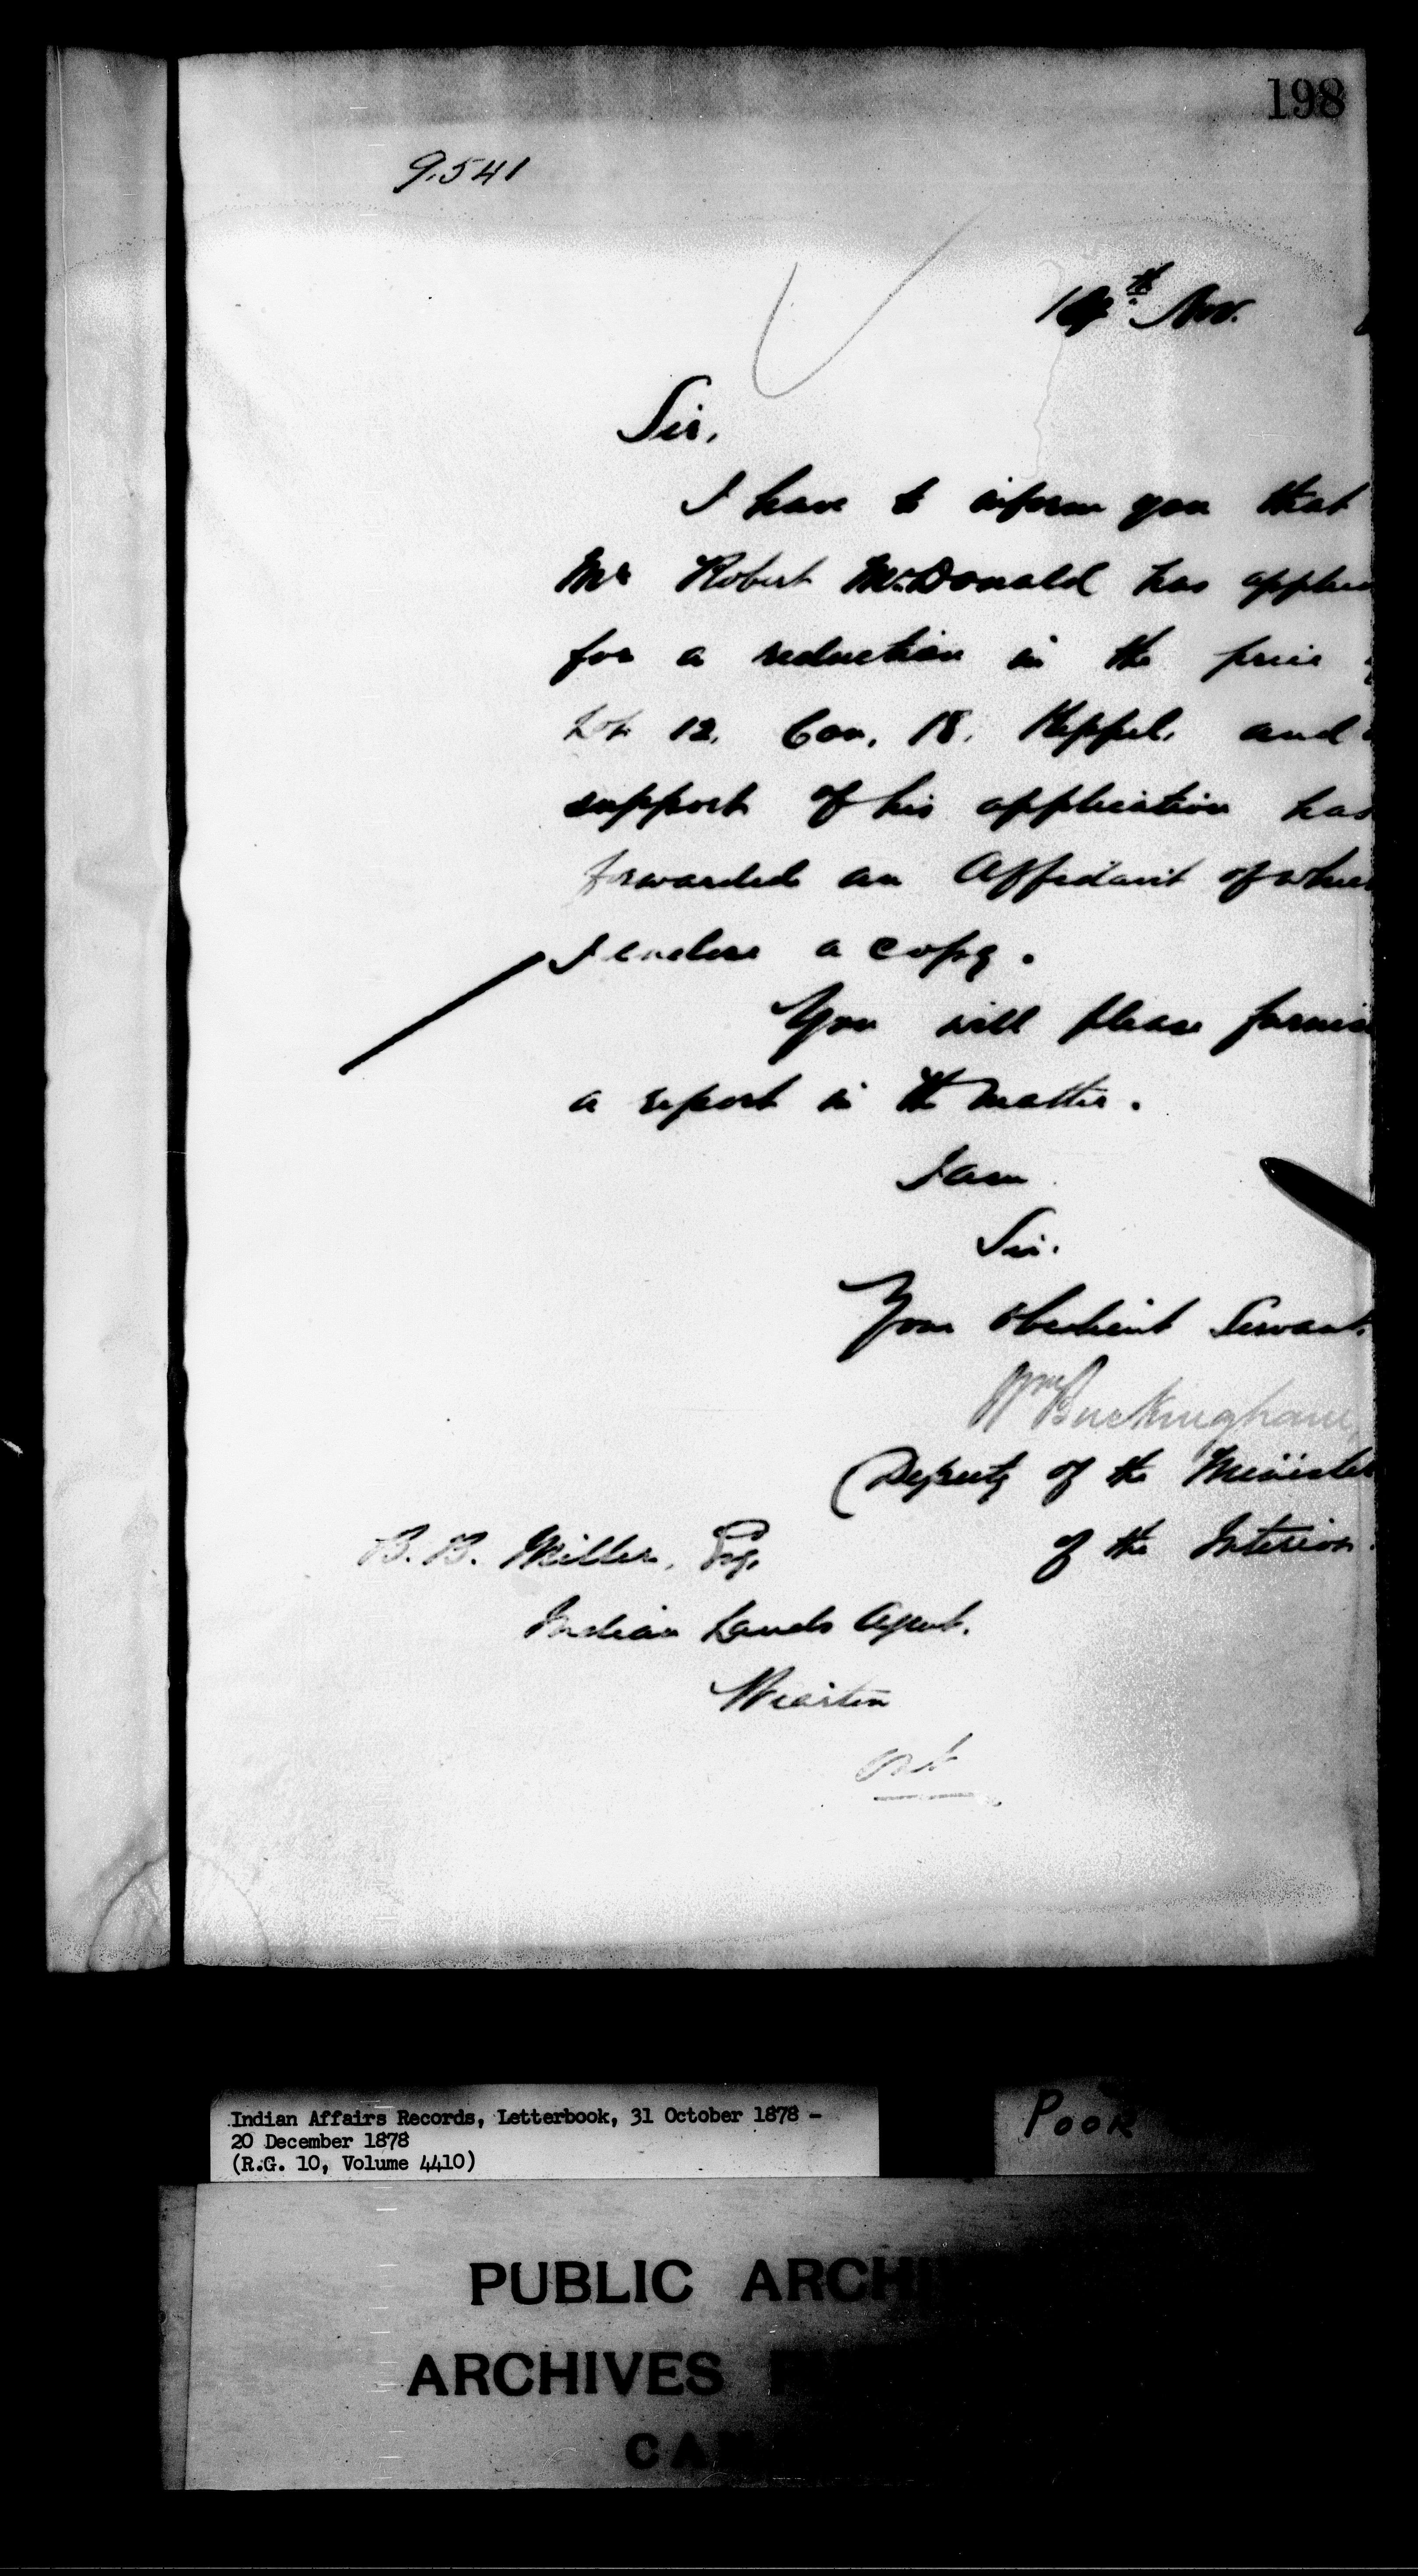 198
9.541
14th Nov.
Sir,
I have to inform you that
Mr Robert McDonald has applie
for a reduction in the price
Lot 12, Con, 18, Keppel, and
support of his application has
forwarded an Affidavit of whic
I enclose a copy.
You will please furnis
a report in the matter.
I am
Sir.
Your obedient Servant.
Wm Buckingham
Deputy of the Minister
of the Interior.
B. B. Miller, Esq,
Indian Lands Agent.
Wiarton
Ont
Indian Affairs Records, Letterbook, 31 October 1878 -
20 December 1878
(R.G. 10, Volume 4410)
POOR
PUBLIC ARCHI
ARCHIVES
CAN